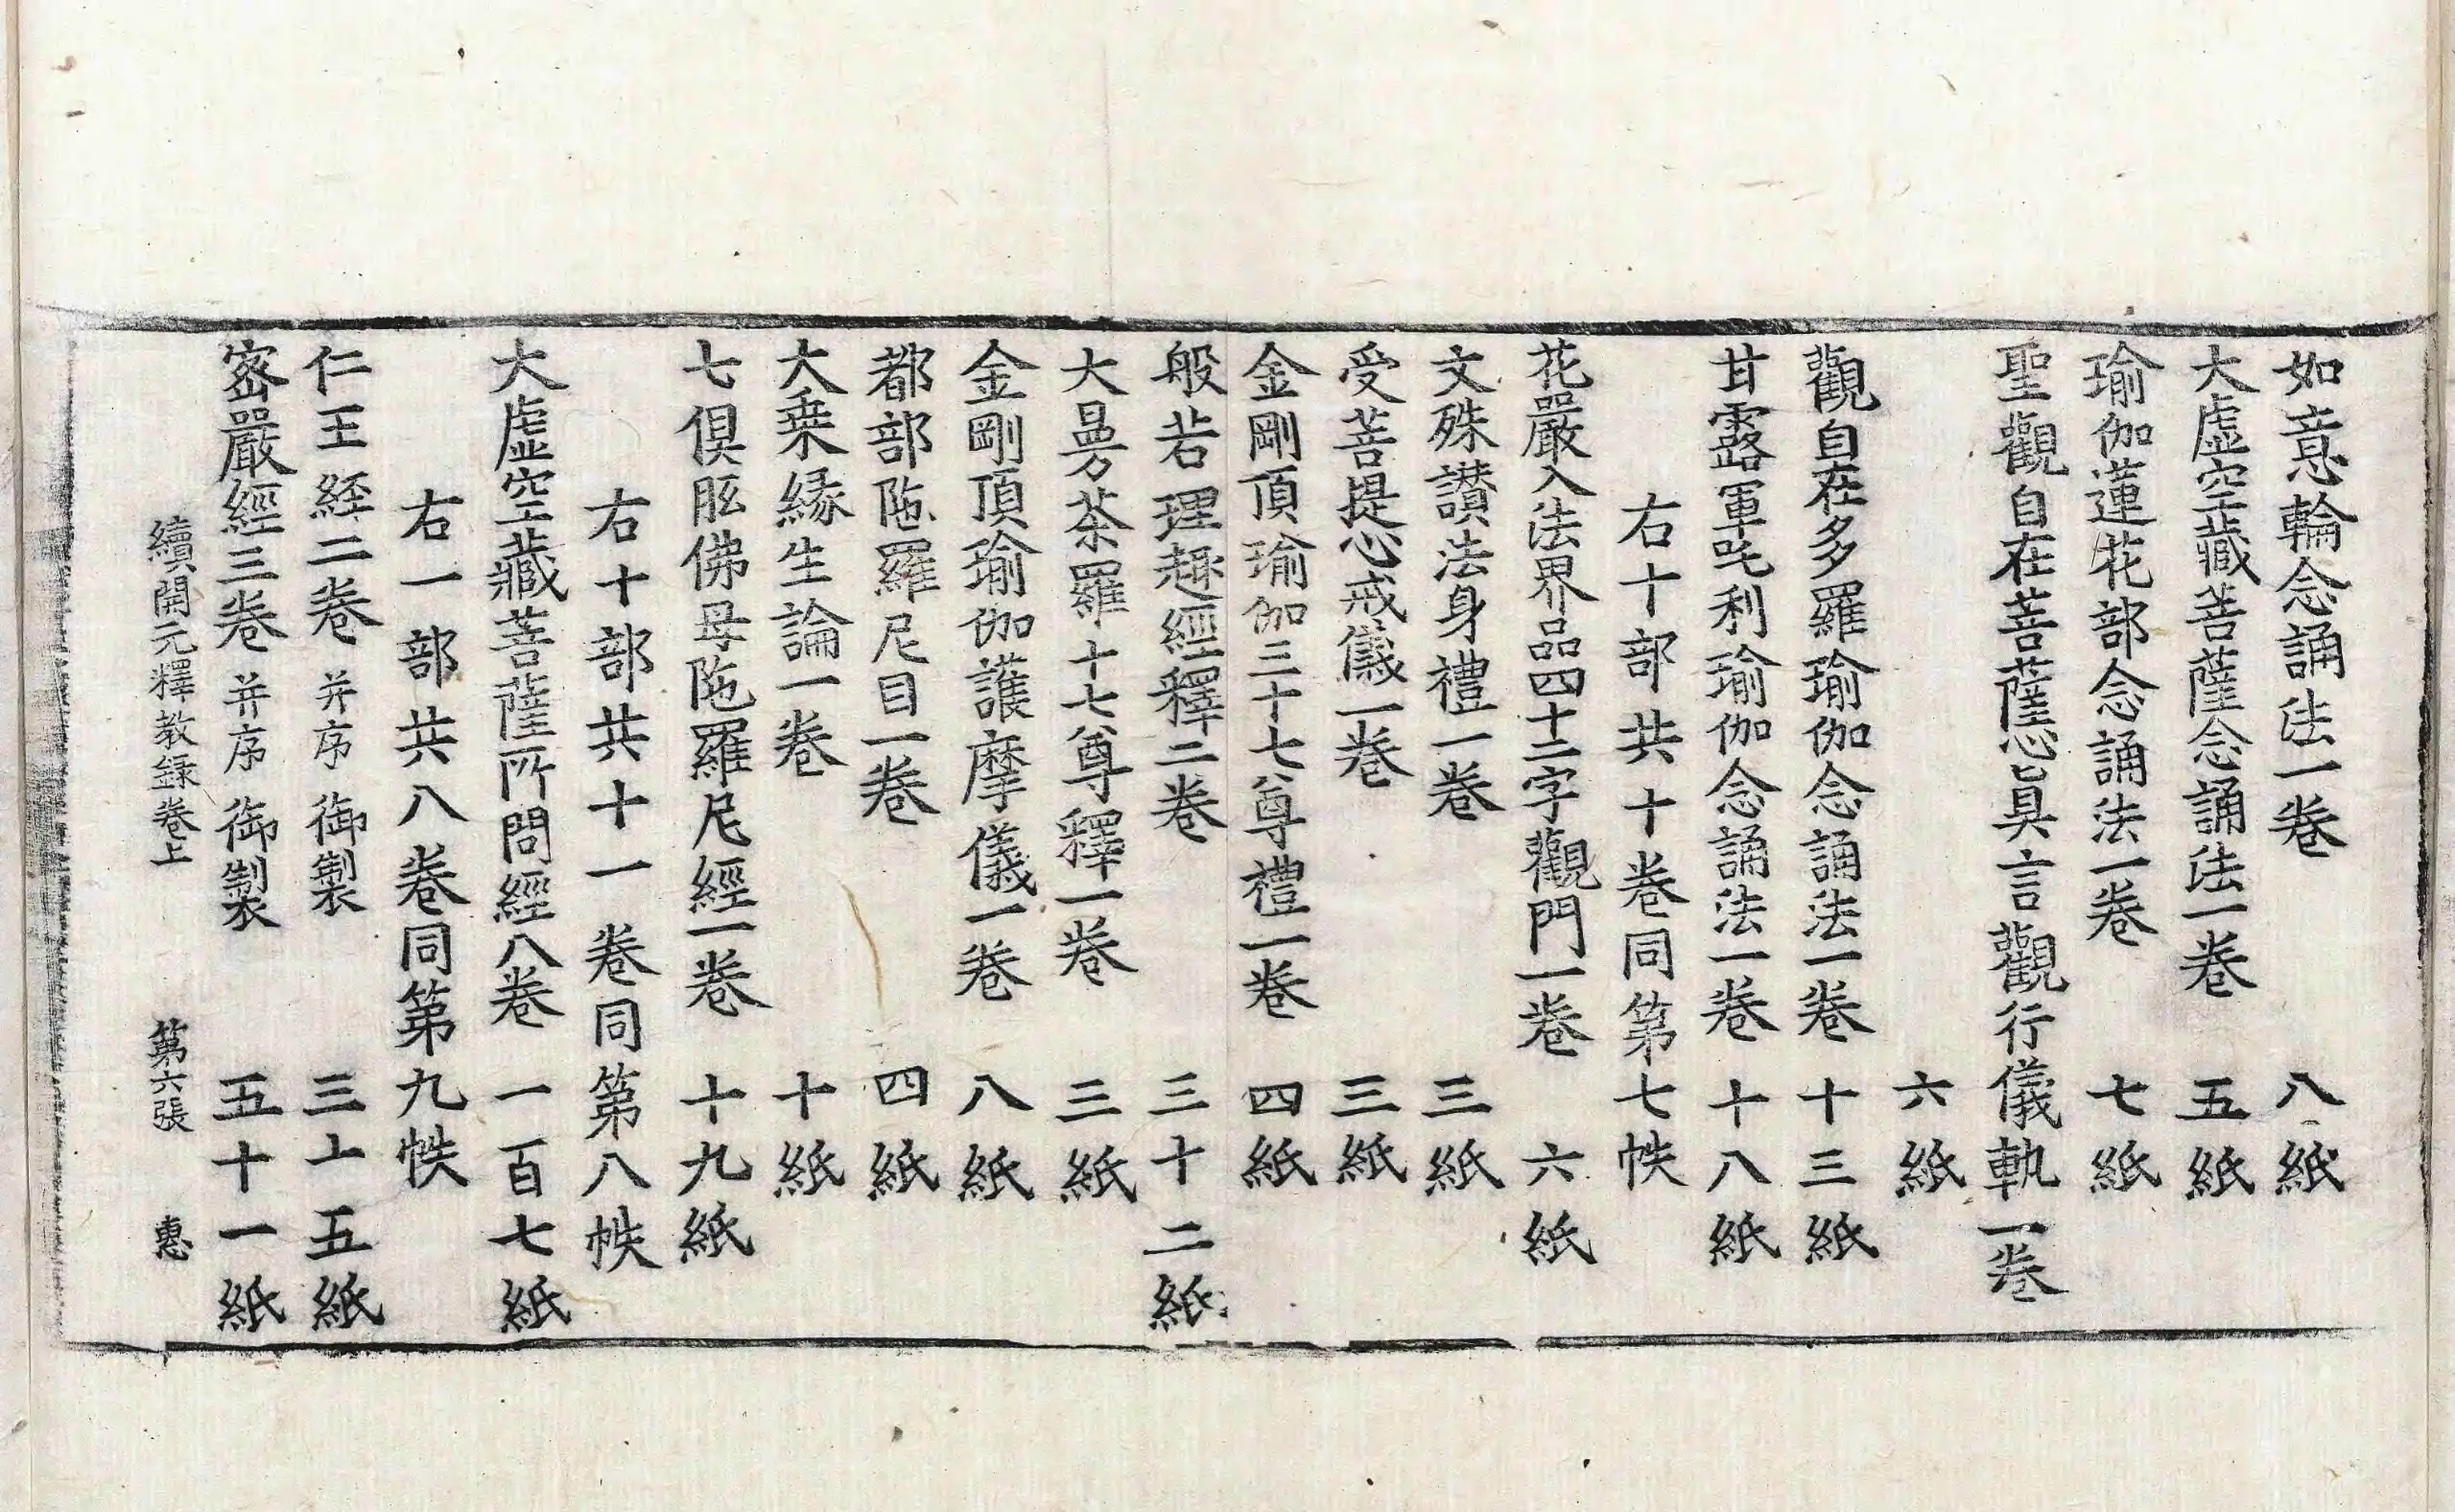 如意輪念誦法一卷 八紙
大虛空藏菩薩念誦法一卷 五紙
瑜伽蓮花部念誦法一卷 七紙
聖觀自在菩薩心眞言觀行儀軌一卷
六紙
觀自在多羅瑜伽念誦法一卷 十三紙
甘露軍吒利瑜伽念誦法一卷 十八紙
右十部共十卷同第七帙
花嚴入法界品四十二字觀門一卷 六紙
文殊讃法身禮一卷 三紙
受菩提心戒儀一卷 三紙
金剛頂瑜伽三十七尊禮一卷 四紙
般若理趣經釋二卷 三十二紙
大曼荼羅十七尊釋一卷 三紙
金剛頂瑜伽護摩儀一卷 八紙
都部陁羅尼目一卷 四紙
大乗緣生論一卷 十紙
七俱胝佛母陁羅尼經一卷 十九紙
右十部共十一卷同第八帙
大虛空藏菩薩所問經八卷 一百七紙
右一部共八卷同第九帙
仁王経二卷 并序 御製 三十五紙
密嚴經三卷 并序 御製 五十一紙
續開元釋教録卷上 第六張 惠